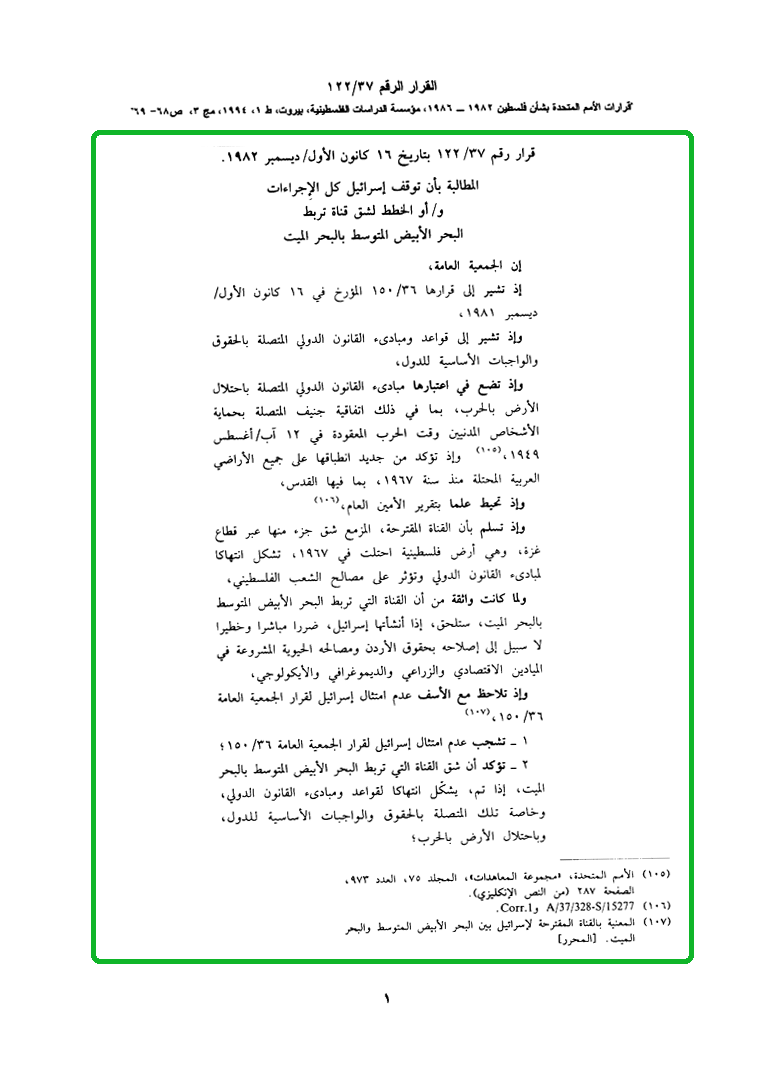 القرار الرقم ١٢٢/٣٧
"قرارات الأمم المتحدة بشأن فلسطين ١٩٨٢ – ١٩٨٦، مؤسسة الدراسات الفلسطينية، بيروت، ط ١، ١٩٩٤، مج ٣، ص٦٨- ٦٩"
قرار رقم ١٢٢/٣٧ بتاريخ ١٦ كانون الأول/ديسمبر ١٩٨٢.
المطالبة بأن توقف إسرائيل كل الإجراءات
و/أو الخطط لشق قناة تربط
البحر الأبيض المتوسط بالبحر الميت
إن الجمعية العامة،
إذ تشير إلى قرارها ١٥٠/٣٦ المؤرخ في ١٦ كانون الأول/
ديسمبر ١٩٨١،
وإذ تشير إلى قواعد ومبادىء القانون الدولي المتصلة بالحقوق
والواجبات الأساسية للدول،
وإذ تضع في اعتبارها مبادىء القانون الدولي المتصلة باحتلال
الأرض بالحرب، بما في ذلك اتفاقية جنيف المتصلة بحماية
الأشخاص المدنيين وقت الحرب المعقودة في ١٢ آب/أغسطس
١٩٤٩،(١٠٥) وإذ تؤكد من جديد انطباقها على جميع الأراضي
العربية المحتلة منذ سنة ١٩٦٧، بما فيها القدس،
وإذ تحيط علما بتقرير الأمين العام،(١٠٦)
وإذ تسلم بأن القناة المقترحة، المزمع شق جزء منها عبر قطاع
غزة، وهي أرض فلسطينية احتلت في ١٩٦٧، تشكل انتهاكا
لمبادىء القانون الدولي وتؤثر على مصالح الشعب الفلسطيني،
ولما كانت واثقة من أن القناة التي تربط البحر الأبيض المتوسط
بالبحر الميت، ستلحق، إذا أنشأتها إسرائيل، ضررا مباشرا وخطيرا
لا سبيل إلى إصلاحه بحقوق الأردن ومصالحه الحيوية المشروعة في
الميادين الاقتصادي والزراعي والديموغرافي والأيكولوجي،
وإذ تلاحظ مع الأسف عدم امتثال إسرائيل لقرار الجمعية العامة
١٥٠/٣٦،(١٠٧)
١ ـ تشجب عدم امتثال إسرائيل لقرار الجمعية العامة ١٥٠/٣٦؛
٢ ـ تؤكد أن شق القناة التي تربط البحر الأبيض المتوسط بالبحر
الميت، إذا تم، يشكّل انتهاكا لقواعد ومبادىء القانون الدولي،
وخاصة تلك المتصلة بالحقوق والواجبات الأساسية للدول،
وباحتلال الأرض بالحرب؛
(١٠٥) الأمم المتحدة، «مجموعة المعاهدات»، المجلد ٧٥، العدد ٩٧٣،
الصفحة ٢٨٧ (من النص الإنكليزي).
(١٠٦) A/37/328-S/15277 وCorr.1.
(١٠٧) المعنية بالقناة المقترحة لإسرائيل بين البحر الأبيض المتوسط والبحر
الميت. [المحرر]
١